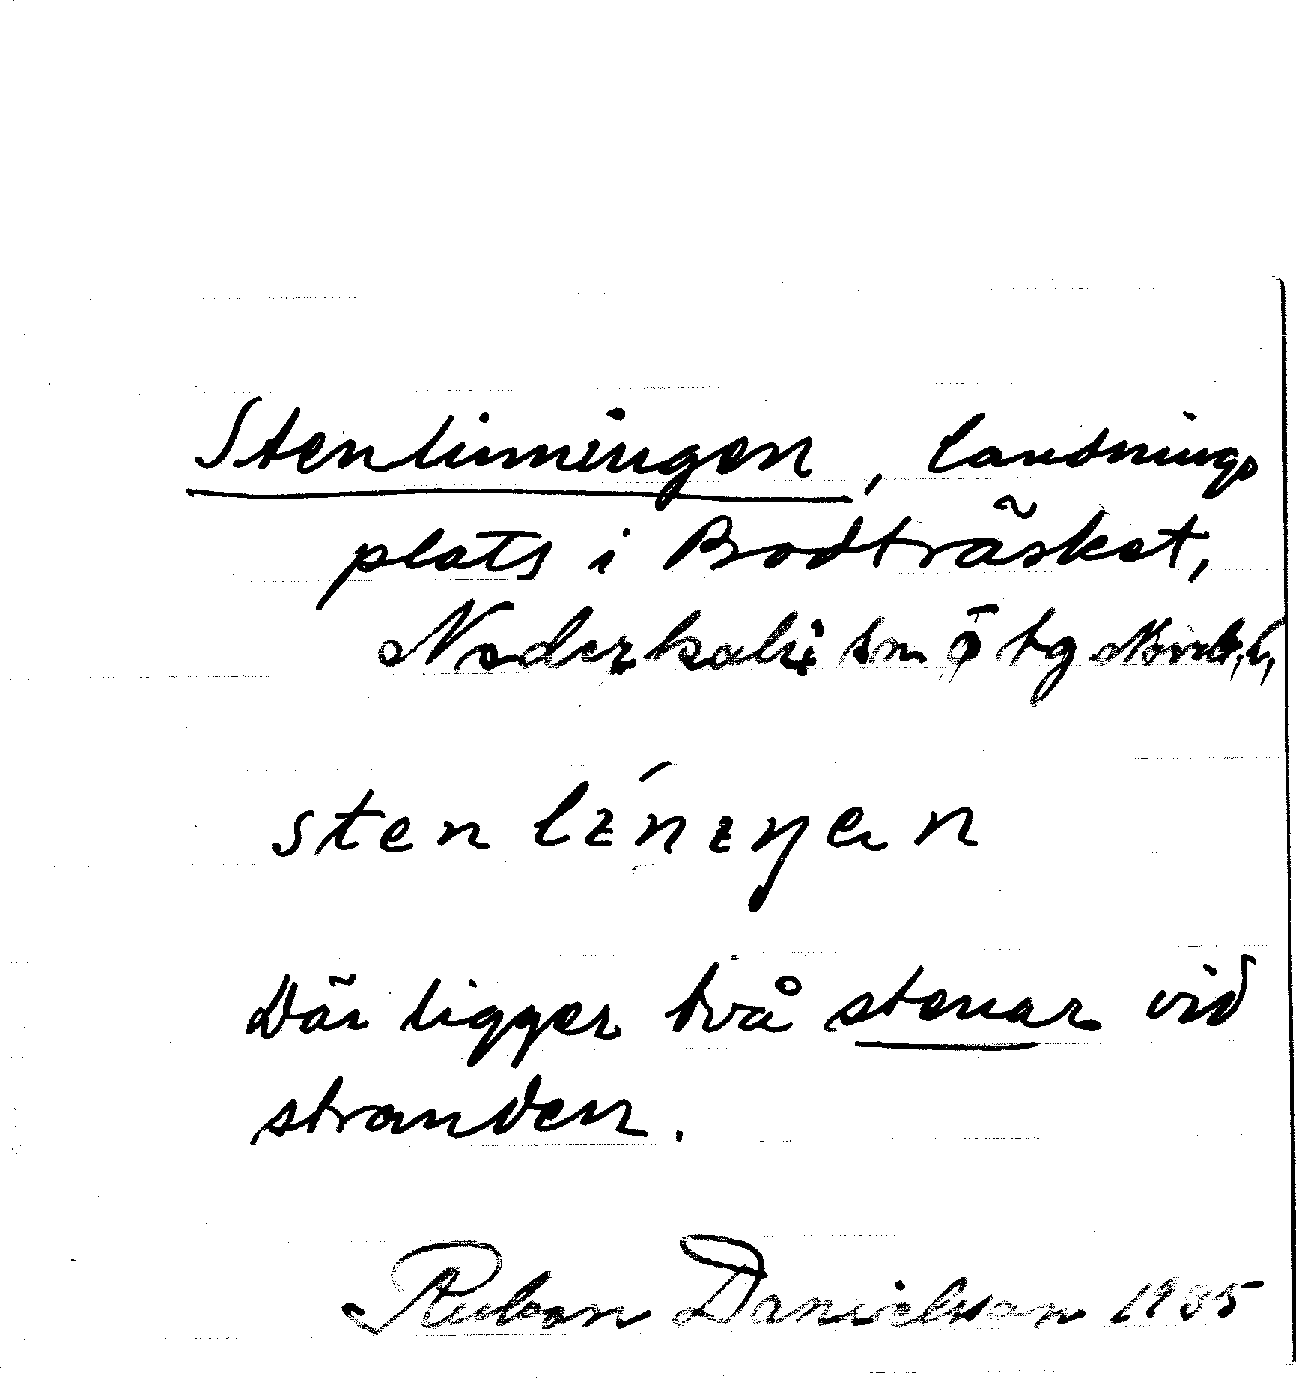 Stenlinningen, landnings
plats i Bodträsket,
Nederkalix sn ö tg
sten lɪ́nɪŋen
Där ligger två stenar vid
stranden.
Ruben Danielsson 1985